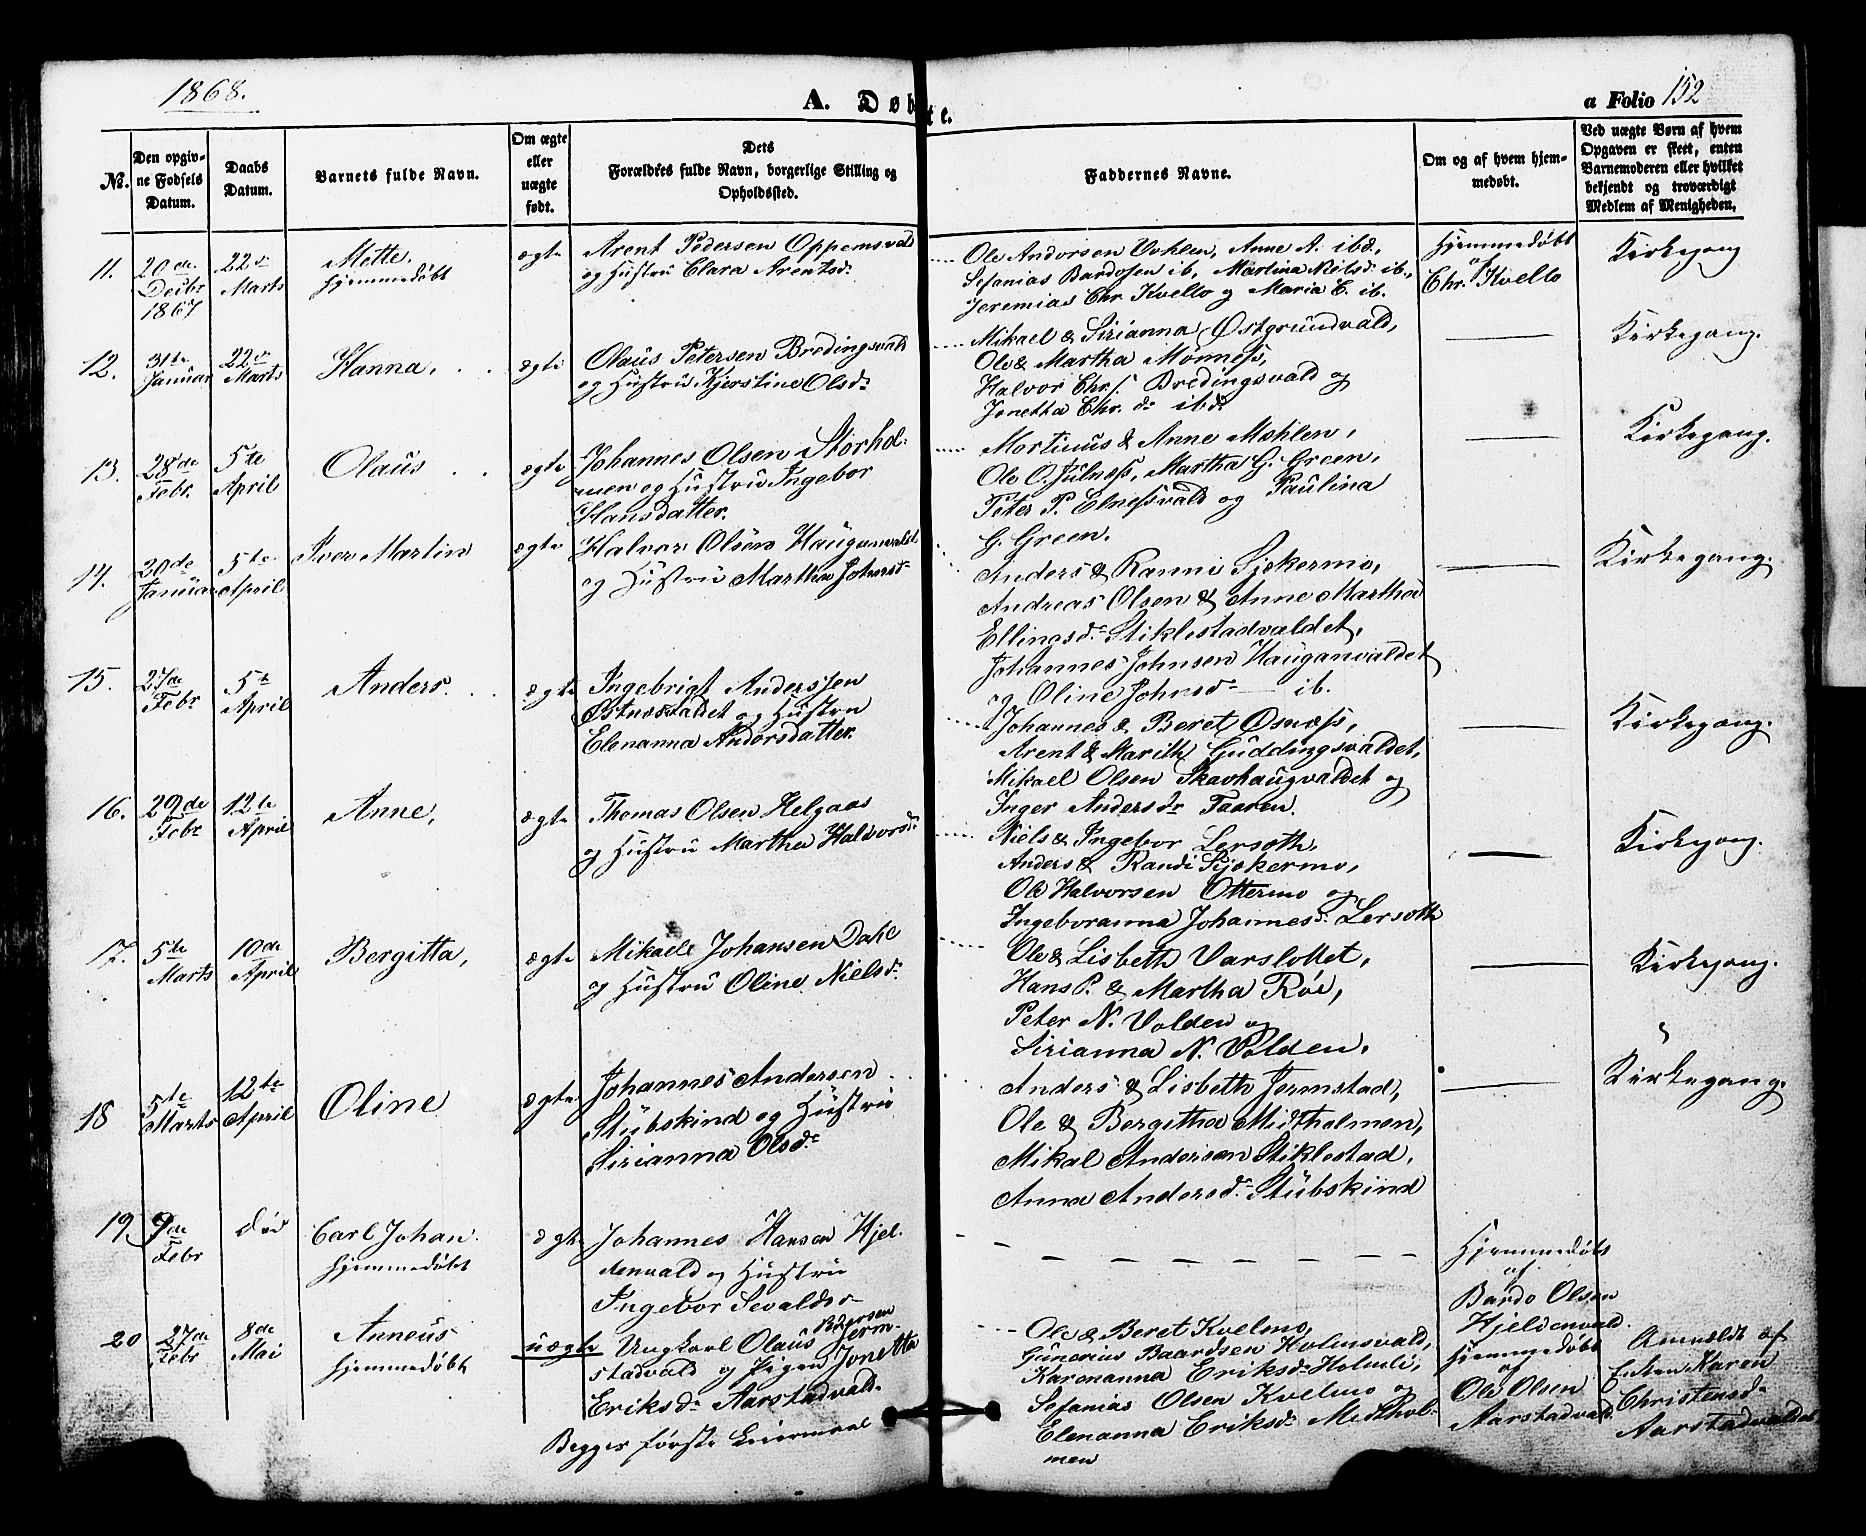 1868.
A. Døbte.
a Folio 152
No.
Den opgivne Fødsels Datum.
Daabs Datum.
Barnets fulde Navn.
Om ægte eller uægte født.
Dets Forældres fulde Navn, borgerlige Stilling og Opholdssted.
Faddernes Navne.
Om og af hvem hjemmedøbt.
Ved uægte Børn af hvem Opgaven er skeet, enten Barnemoderen eller hvilket bekjendt og troværdigt Medlem af Menigheden.
11.
20de Decbr 1867
22de Marts
Mette.
hjemmedøbt
ægte
Arent Pedersen Oppemsvald
og Hustru Clara Arentsdr
Ole Andersen Vohlen, Anne A. ibd.,
Sefanias Bardosen ib, Martina Nielsdr ib.,
Jeremias Chr. Kvello og Maria C. ib.
Hjemmedøbt
af
Chr. Kvello
Kirkegang
12.
31te Januar
22de Marts
Hanna,
ægte
Olaus Petersen Bredingsvald
og Hustru Kjerstine Olsdr
Mikael & Sirianna Østgrundvald,
Ole & Martha Mønness,
Halvor Chr. Bredingsvald og
Jonetta Chr. dr ibd.
Kirkegang.
13.
28de Febr.
5te April
Olaus
ægte
Johannes Olsen Storhol-
men og Hustru Ingebor
Hansdatter.
Mortinus & Anne Mæhlen,
Ole O. Julness, Martha G. Green,
Peter P. Elnessvald og Paulina
G. Green.
Kirkegang.
14.
20de Januar
5te April
Iver Martin
ægte
Halvor Olsen Hauganvaldet
og Hustru Martha Johnsdr
Anders & Ranni Sjøkermo,
Andreas Olsen & Anne Martha
Ellingsdr Stiklestadvaldet,
Johannes Johnsen Hauganvaldet
og Oline Johnsdr ib.
Kirkegang.
15.
27de Febr
5te April
Anders.
ægte
Ingebrigt Anderssen
Østnesvaldet og Hustru
Elenanna Andersdatter.
Johannes & Beret Østnæss,
Arent & Marith Guddingsvaldet,
Mikael Olsen Skavhaugvaldet og
Inger Andersdr Taaren.
Kirkegang.
16.
29de Febr
12te April
Anne,
ægte
Thomas Olsen Helgaas
og Hustru Martha Halvorsdr
Niels & Ingebor Lersøth,
Anders & Randi Sjøkermo,
Ole Halvorsen Ottermo og
Ingeboranna Johannesdr Lersøth
Kirkegang.
17.
5te Marts
10de April
Bergitta,
ægte
Mikael Johansen Dahl
og Hustru Oline Nielsdr
Ole & Lisbeth Varslottet,
Hans P. & Martha Røe,
Peter N. Volden og
Sirianna N. Volden.
Kirkegang.
18
5te Marts
12te April
Oline
ægte
Johannes Andersen
Stubskind og Hustru
Sirianna Olsdr
Anders & Lisbeth Jermstad,
Ole & Bergitha Midtholmen,
Mikal Andersen Stiklestad,
Anna Andersdr Stubskind
Kirkegang.
19
9de Febr
død
Carl Johan.
hjemmedøbt
ægte
Johannes Hansen Hjel-
denvald og Hustru
Ingebor Sevaldsdr
Hjemmedøbt
af
Bardo Olsen
Hjeldenvald.
20
27de Febr
8de Mai
Anneus
hjemmedøbt
uægte
Ungkarl Olaus Pedersen Jerm-
stadvald og Pigen Jonetta
Eriksdr Aarstadvald.
Begges første Leiermaal
Ole & Beret Kvelmo,
Gunerius Baardsen Holmsvald,
Karenanna Eriksdr Holmli,
Sefanias Olsen Kvelmo og
Elenanna Eriksdr Midthol-
men
Hjemmedøbt
af
Ole Olsen
Aarstadvald.
Anmeldt af
Enken Karen
Christensdr
Aarstadvaldet